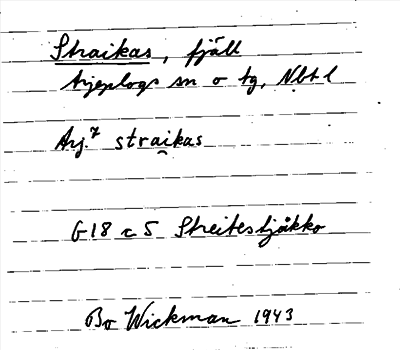 Straikas, fjäll
Arjeplogs sn o tg, Nbtl
Arj. straikas
G18 c 5 Streitestjåkko
Bo Wickman 1943